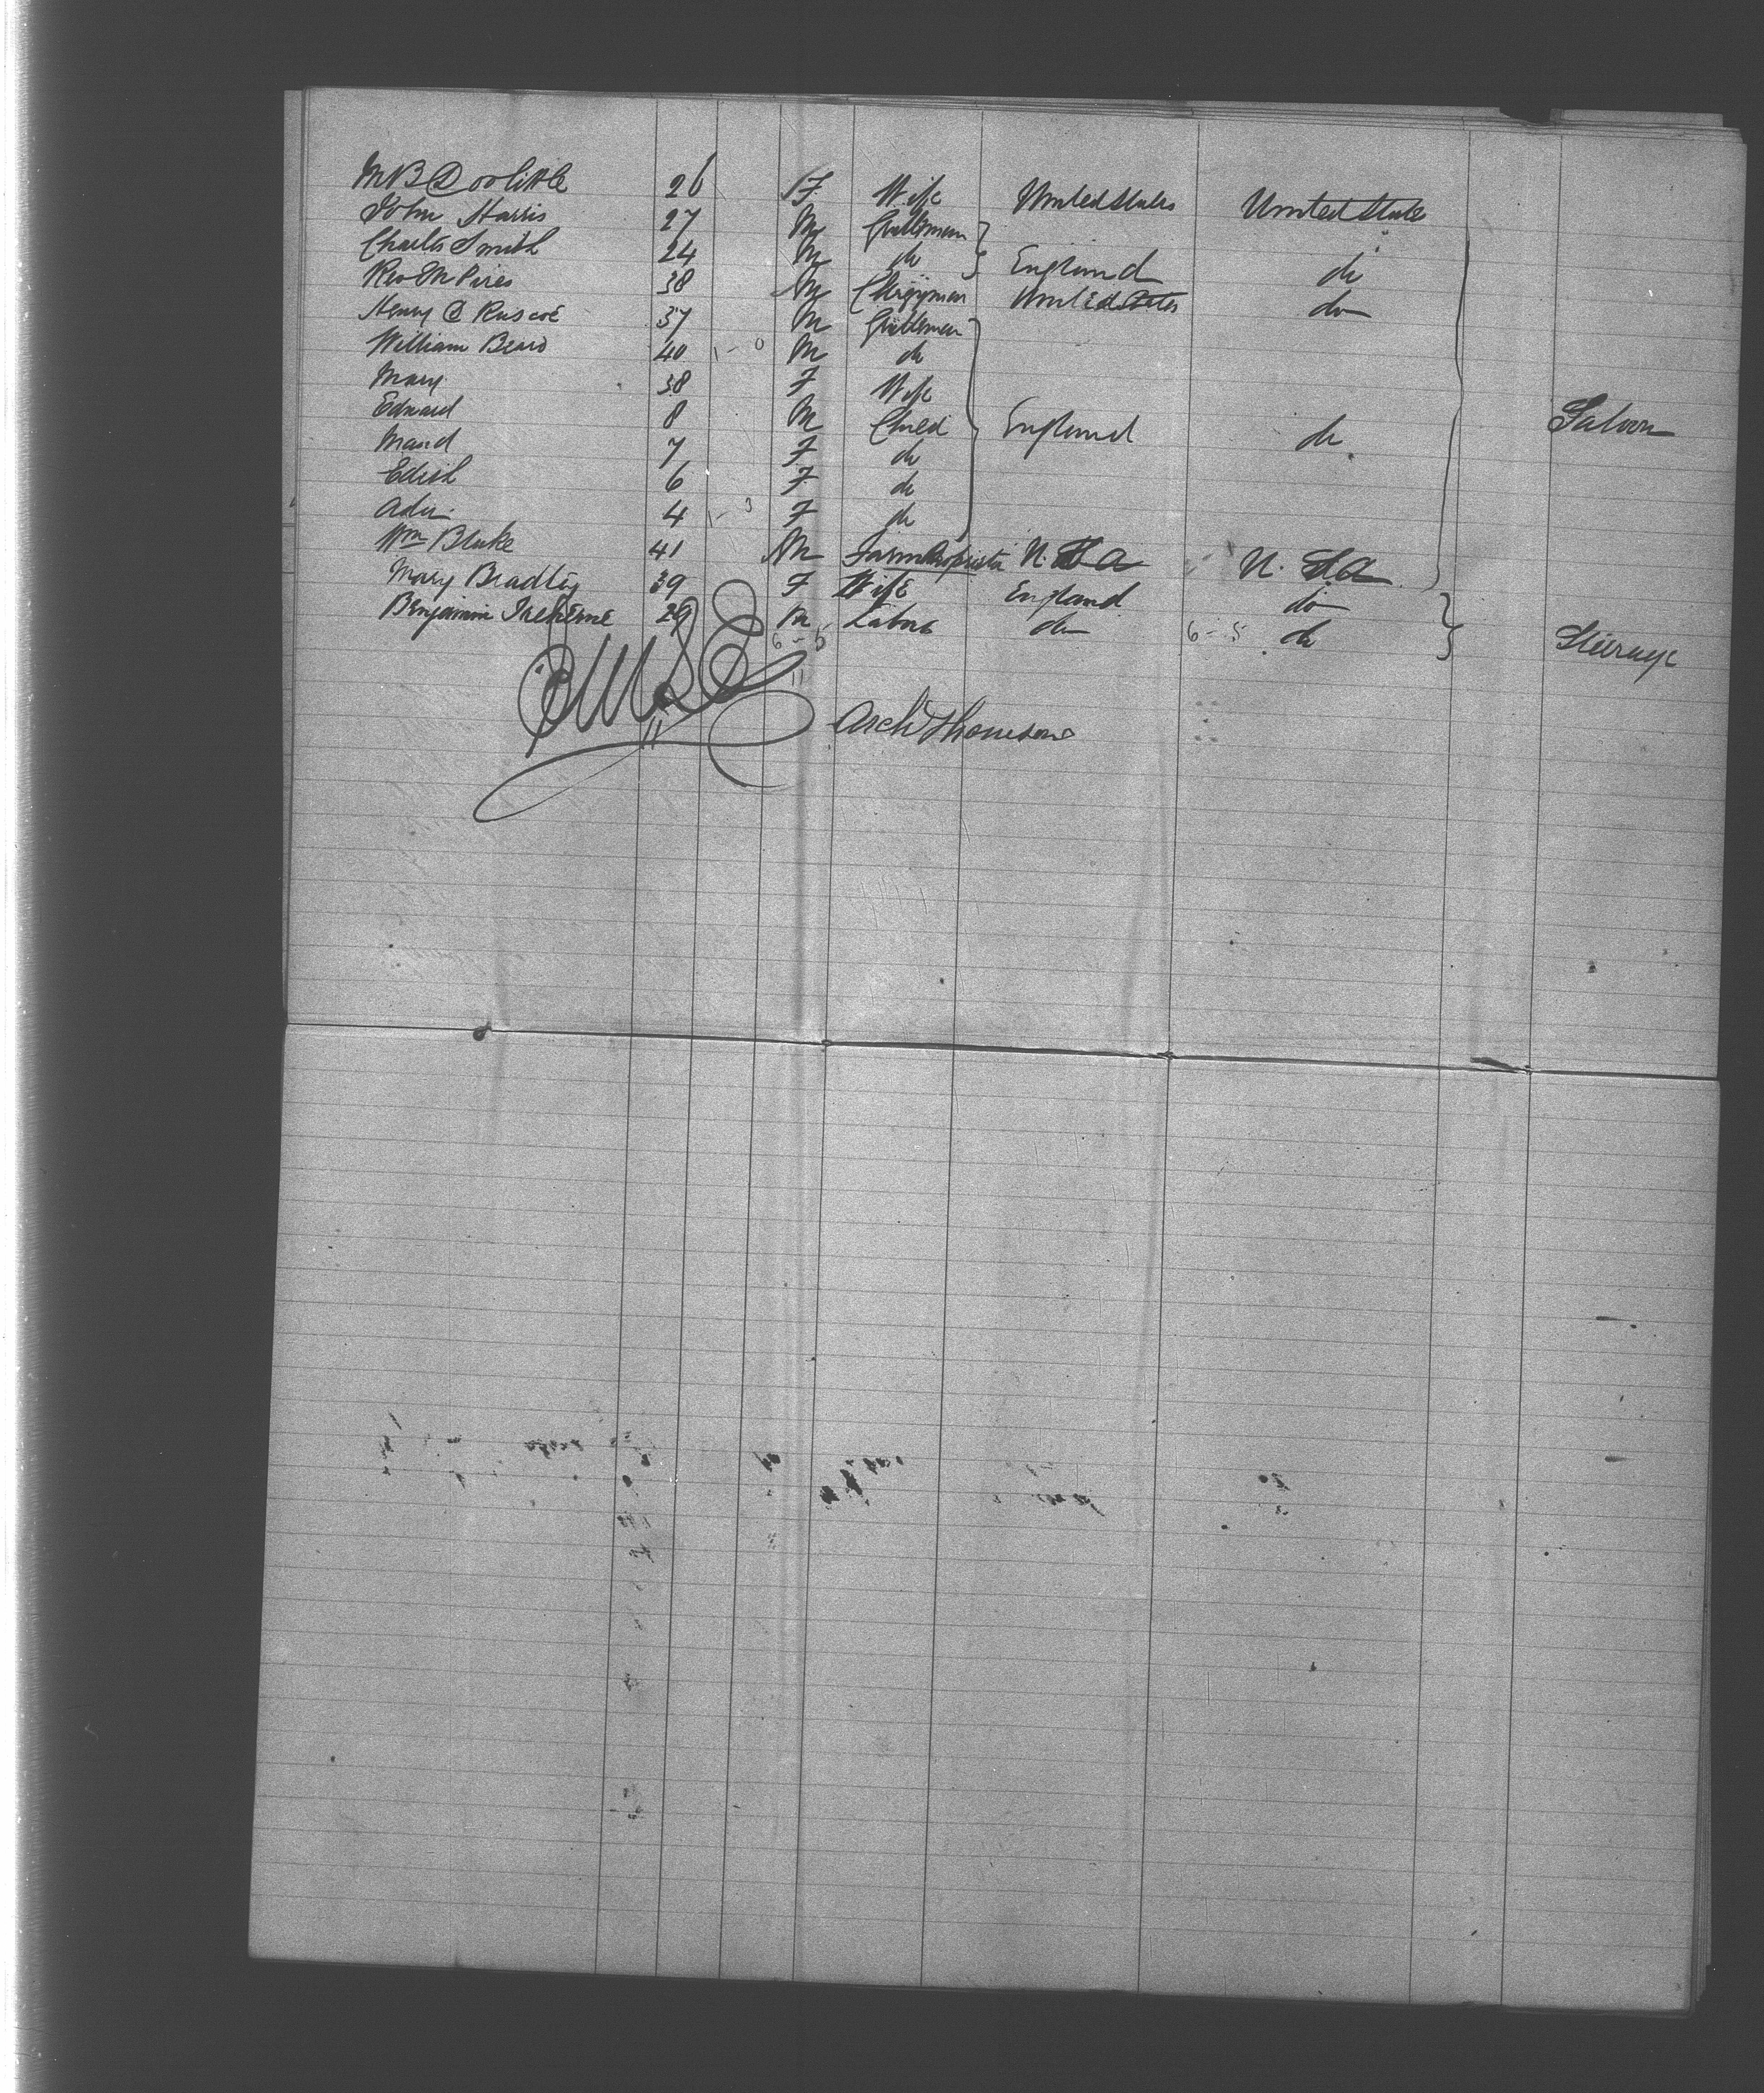 M B Doolittle 26 F Wife United States United States
John Harris 27 M Gentleman
Charles Smith 24 M do England do
Rev M Pires 38 M Clergyman United States do
Henry C Ruscoe 37 M Gentleman
William Beard 40 1-0 M do
Mary 38 F Wife
Edward 8 M Child England do Saloon
Maud 7 F do
Edith 6 F do
Ada 4 1-3 F do
Wm Blake 41 M Farm U.S.A U.S.A
Mary Bradley 39 F Wife England do
Benjamin 29 M Labor do 6-5 do Steerage
6-5
11
11
Arch Thomson